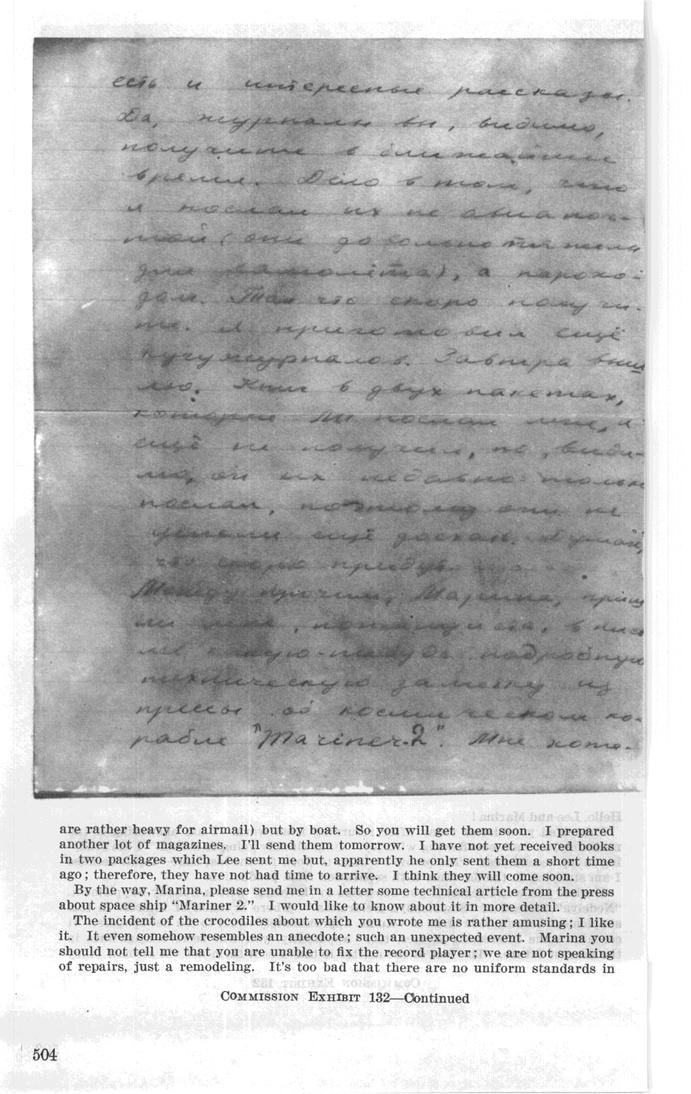 есть и интересные рассказы.
Да, журналы вы, видимо,
получите в ближайшее
время. Дело в том, что
я послал их не авиапоч-
той (они довольно тяжелы
для самолёта), а парохо-
дом. Так что скоро получи-
те. Я приготовил ещё
кучу журналов. Завтра вышлю
лю. Книг в двух пакетах,
которые Ли послал мне, я
ещё не получил, но, види-
мо, он их недавно только
послал, поэтому они не
успели ещё дойти. Думаю,
что скоро придут.
Между прочим, Марина, пришли
ли мне, пожалуйста, в пись
ме какую-нибудь подробную
техническую заметку из
прессы об космическом ко-
рабле "Mariner-2". Мне хоте-
are rather heavy for airmail) but by boat. So you will get them soon. I prepared
another lot of magazines. I'll send them tomorrow. I have not yet received books
in two packages which Lee sent me but, apparently he only sent them a short time
ago; therefore, they have not had time to arrive. I think they will come soon.
By the way, Marina, please send me in a letter some technical article from the press
about space ship "Mariner 2." I would like to know about it in more detail.
The incident of the crocodiles about which you wrote me is rather amusing; I like
it. It even somehow resembles an anecdote; such an unexpected event. Marina you
should not tell me that you are unable to fix the record player; we are not speaking
of repairs, just a remodeling. It's too bad that there are no uniform standards in
COMMISSION EXHIBIT 132—Continued
504